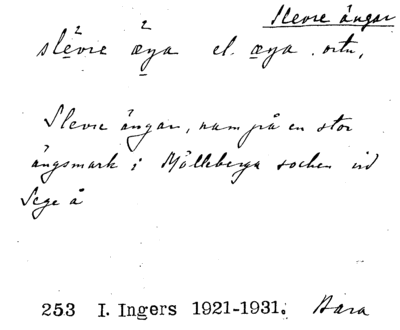 Slevre ängar
slevre æŋa el. æŋa . ortn,
Slevre ängar, namn på en stor
ängsmark i Mölleberga socken vid
Sege å
253 I. Ingers 1921-1931. Bara